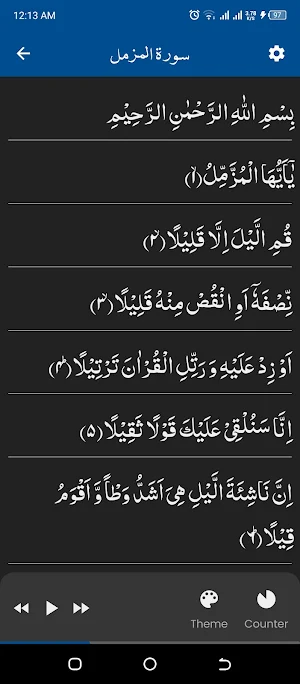 12:13 AM
3.78 K/s 97
سورة المزمل
بِسْمِ اللّٰهِ الرَّحْمٰنِ الرَّحِيْمِ
يٰۤاَيُّهَا الْمُزَّمِّلُ ﴿۱﴾
قُمِ الَّيْلَ اِلَّا قَلِيْلًا ﴿۲﴾
نِّصْفَهٗۤ اَوِ انْقُصْ مِنْهُ قَلِيْلًا ﴿۳﴾
اَوْ زِدْ عَلَيْهِ وَ رَتِّلِ الْقُرْاٰنَ تَرْتِيْلًا ﴿۴﴾
اِنَّا سَنُلْقِيْ عَلَيْكَ قَوْلًا ثَقِيْلًا ﴿۵﴾
اِنَّ نَاشِئَةَ الَّيْلِ هِيَ اَشَدُّ وَطْاً وَّ اَقْوَمُ
قِيْلًا ﴿۶﴾
Theme Counter